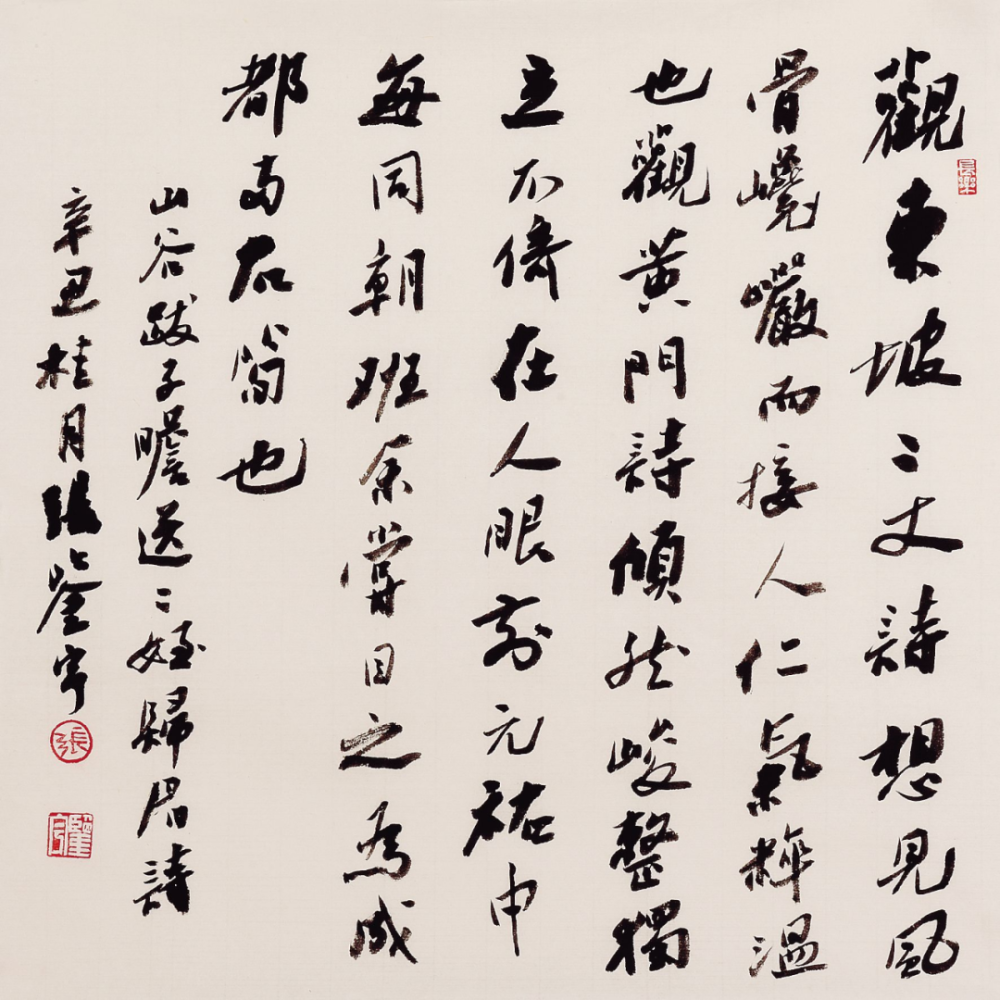 觀東坡二丈詩想見風
骨巉巖而接人仁氣粹溫
也觀黃門詩傾然峻整獨
立不倚在人眼前元祐中
每同朝班余嘗目之為成
都兩石筍也
山谷跋子瞻送二姪歸眉詩
辛丑桂月張鑒宇
長樂
張